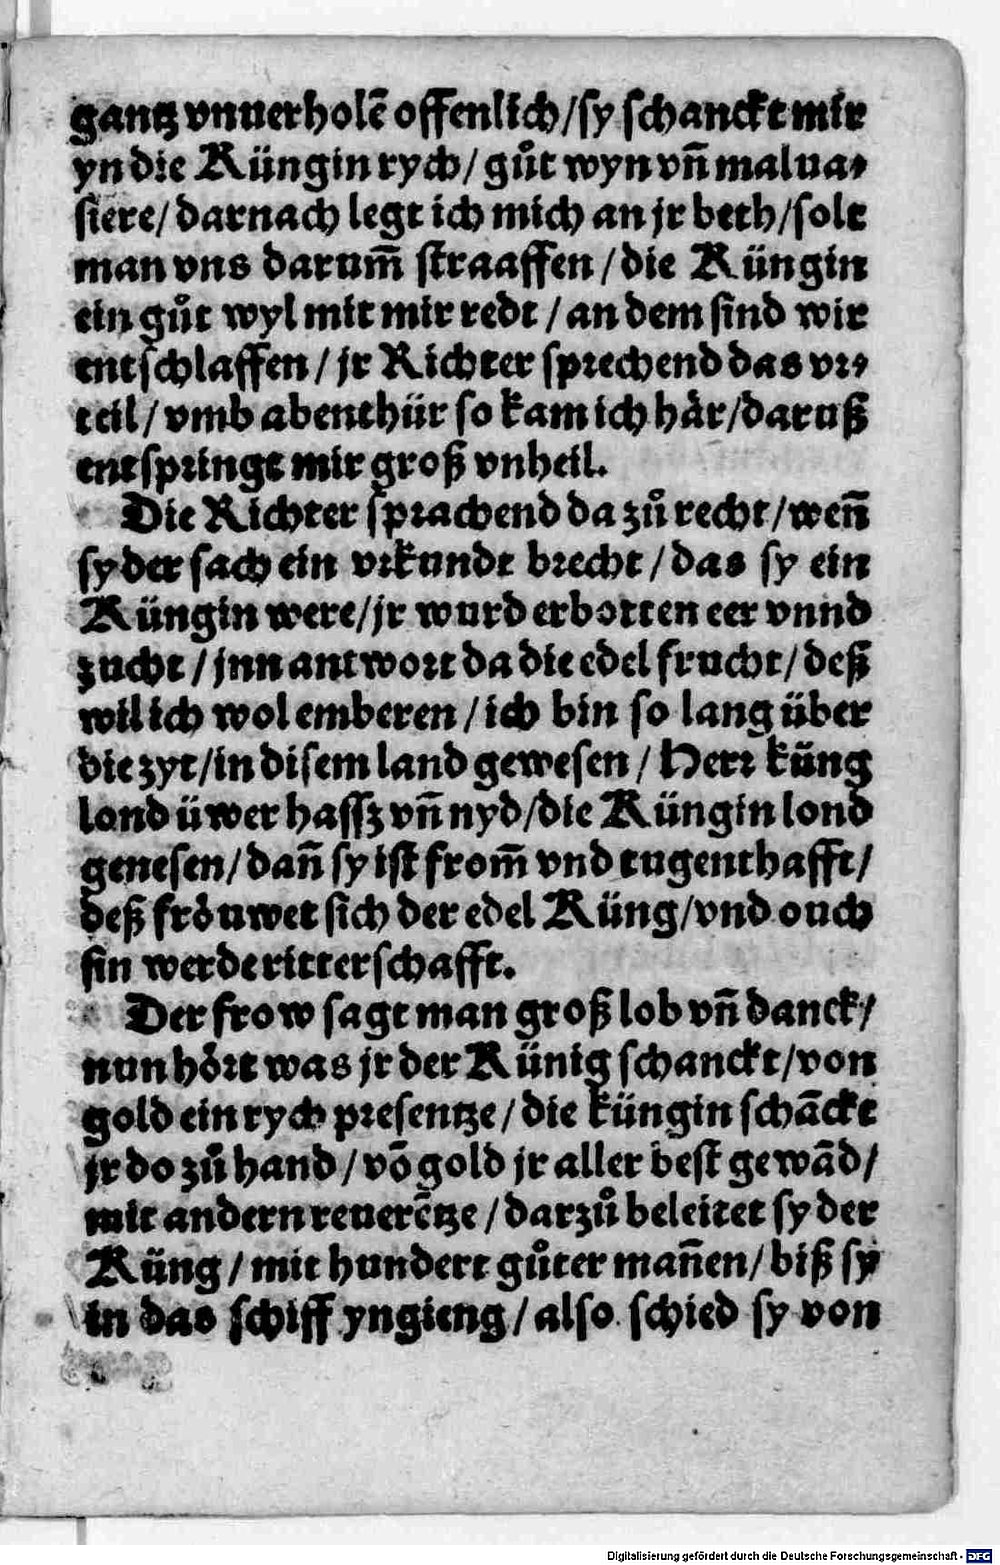 gantz vnuerholē offenlich/sy schanckt mir
yn die Küngin rych/ gůt wyn vn̄ malua⸗
siere/ darnach legt ich mich an jr beth/solt
man vns darum̄ straaffen/die Küngin
ein gůt wyl mit mir redt / an dem sind wir
entschlaffen/ jr Richter sprechend das vr⸗
teil/ vmb abenthür so kam ich här/daruß
entspringt mir groß vnheil.
Die Richter sprachend da zů recht/wen̄
sy der sach ein vrkundt brecht/das sy ein
Küngin were/jr wurd erbotten eer vnnd
zucht/jnn antwort da die edel frucht/deß
wil ich wol emberen/ich bin so lang über
die zyt/in disem land gewesen/ Herr küng
lond üwer hassz vn̄ nyd/die Küngin lond
genesen/dan̄ sy ist from̄ vnd tugenthafft/
deß fröuwet sich der edel Küng/vnd ouch
sin werde ritterschafft.
Der frow sagt man groß lob vn̄ danck/
nun hört was jr der Künig schanckt/von
gold ein rych presentze/die küngin schāckt
jr do zů hand/vō gold jr aller best gewād/
mit andern reuerētze/darzů beleitet sy der
Küng/mit hundert gůter man̄en/biß sy
in das schiff yngieng/also schied sy von
Digitalisierung gefördert durch die Deutsche Forschungsgemeinschaft - DFG